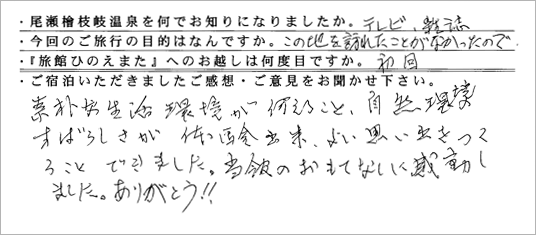 ・尾瀬檜枝岐温泉を何でお知りになりましたか。テレビ、雑誌
・今回のご旅行の目的はなんですか。この地を訪れたことがなかったので
・『旅館ひのえまた』へのお越しは何度目ですか。初回
・ご宿泊いただきましたご感想・ご意見をお聞かせ下さい。
素朴な生活環境が伺えること、自然環境
すばらしさが体験出来、よい思い出をつく
ることができました。当館のおもてないに感動し
ました。ありがとう!!